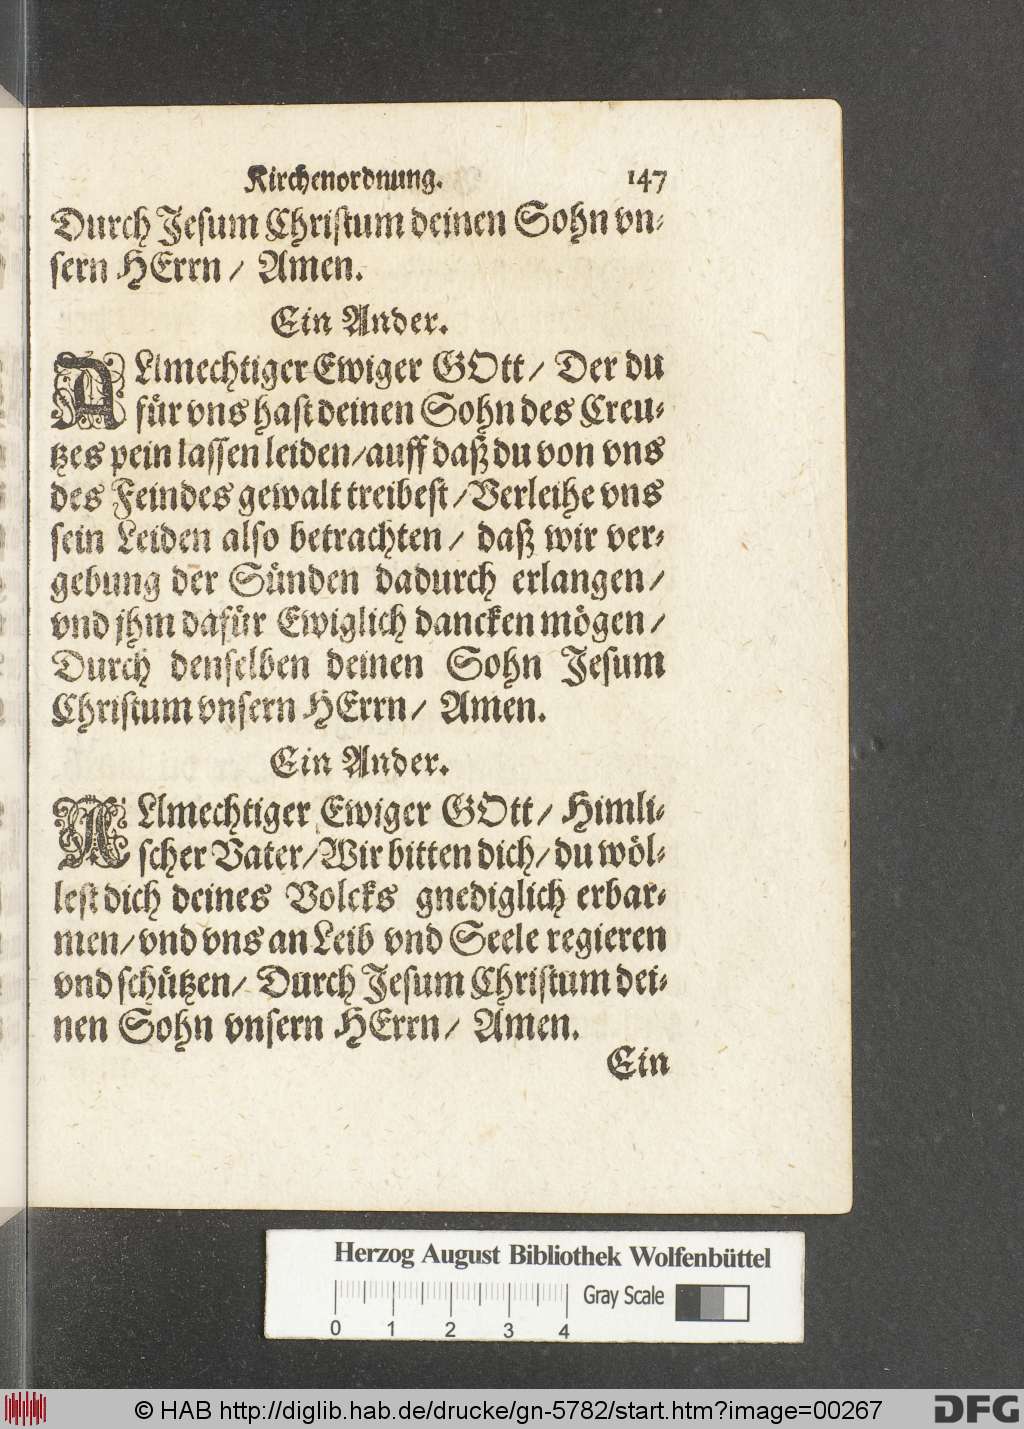 Kirchenordnung. 147
Durch Jesum Christum deinen Sohn vn-
sern HErrn / Amen.
Ein Ander.
ALlmechtiger Ewiger GOtt / Der du
für vns hast deinen Sohn des Creu-
tzes pein lassen leiden / auff daß du von vns
des Feindes gewalt treibest / Verleihe vns
sein Leiden also betrachten / daß wir ver-
gebung der Sünden dadurch erlangen /
vnd jhm dafür Ewiglich dancken mögen /
Durch denselben deinen Sohn Jesum
Christum vnsern HErrn / Amen.
Ein Ander.
ALlmechtiger Ewiger GOtt / Himli-
scher Vater / Wir bitten dich / du wöl-
lest dich deines Volcks gnediglich erbar-
men / vnd vns an Leib vnd Seele regieren
vnd schützen / Durch Jesum Christum dei-
nen Sohn vnsern HErrn / Amen.
Ein
Herzog August Bibliothek Wolfenbüttel
Gray Scale
0 1 2 3 4
© HAB http://diglib.hab.de/drucke/gn-5782/start.htm?image=00267
DFG